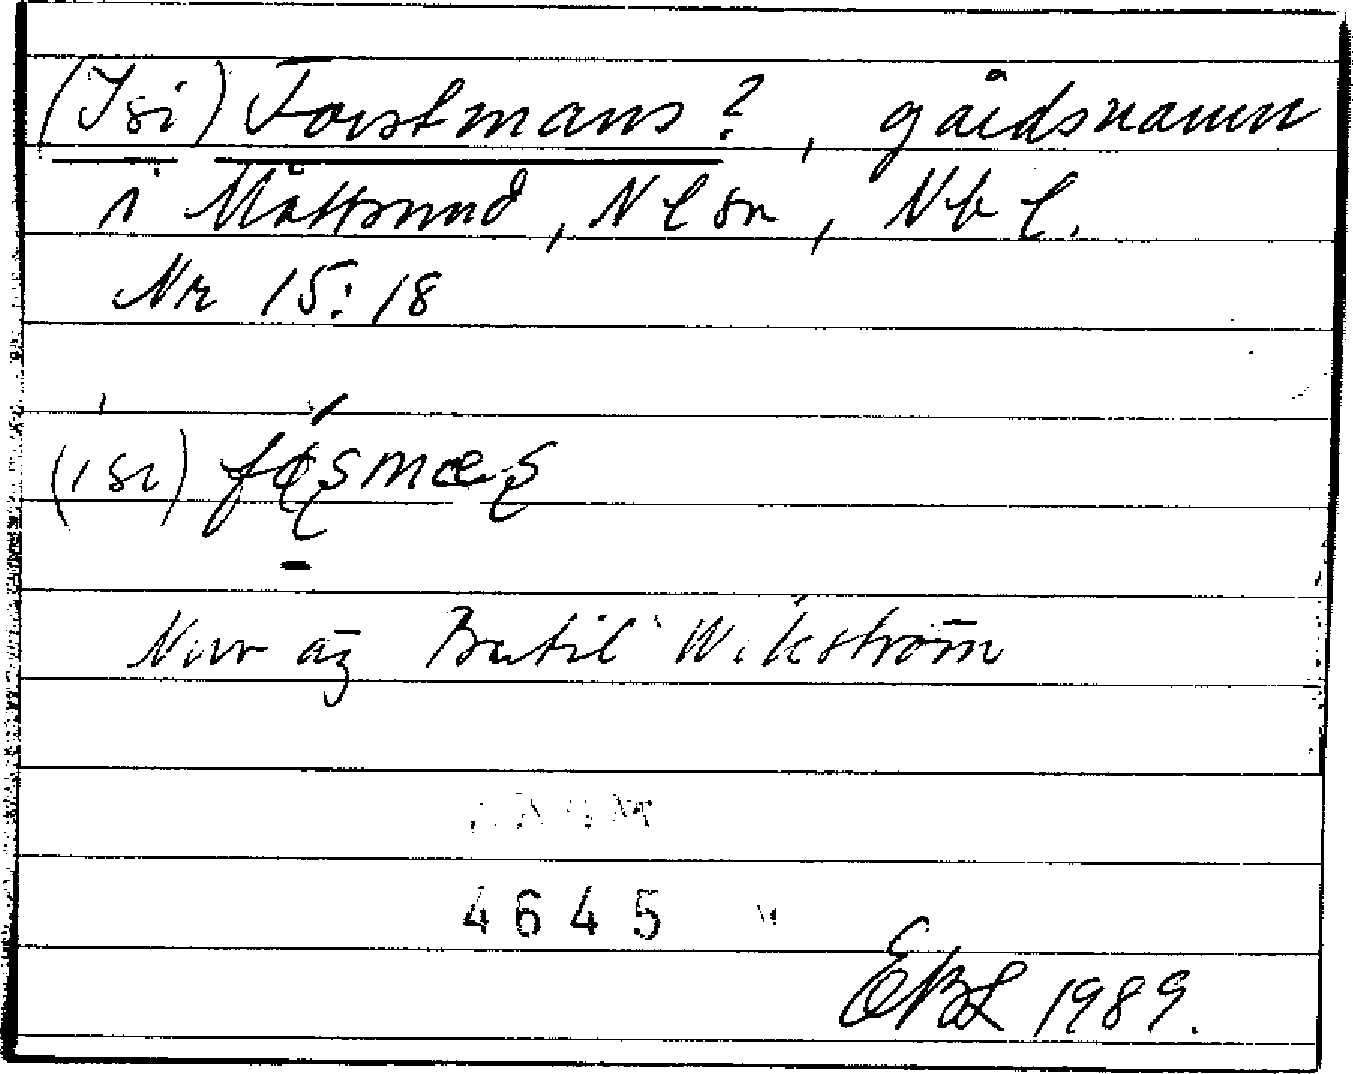 (Isi) Forstmans?, gårdsnamn
i Måttsund, Nl sn, Nb l.
Nr 15:18
(isi)
Nuv äg Bertil Wikström
4645
EBL 1989.